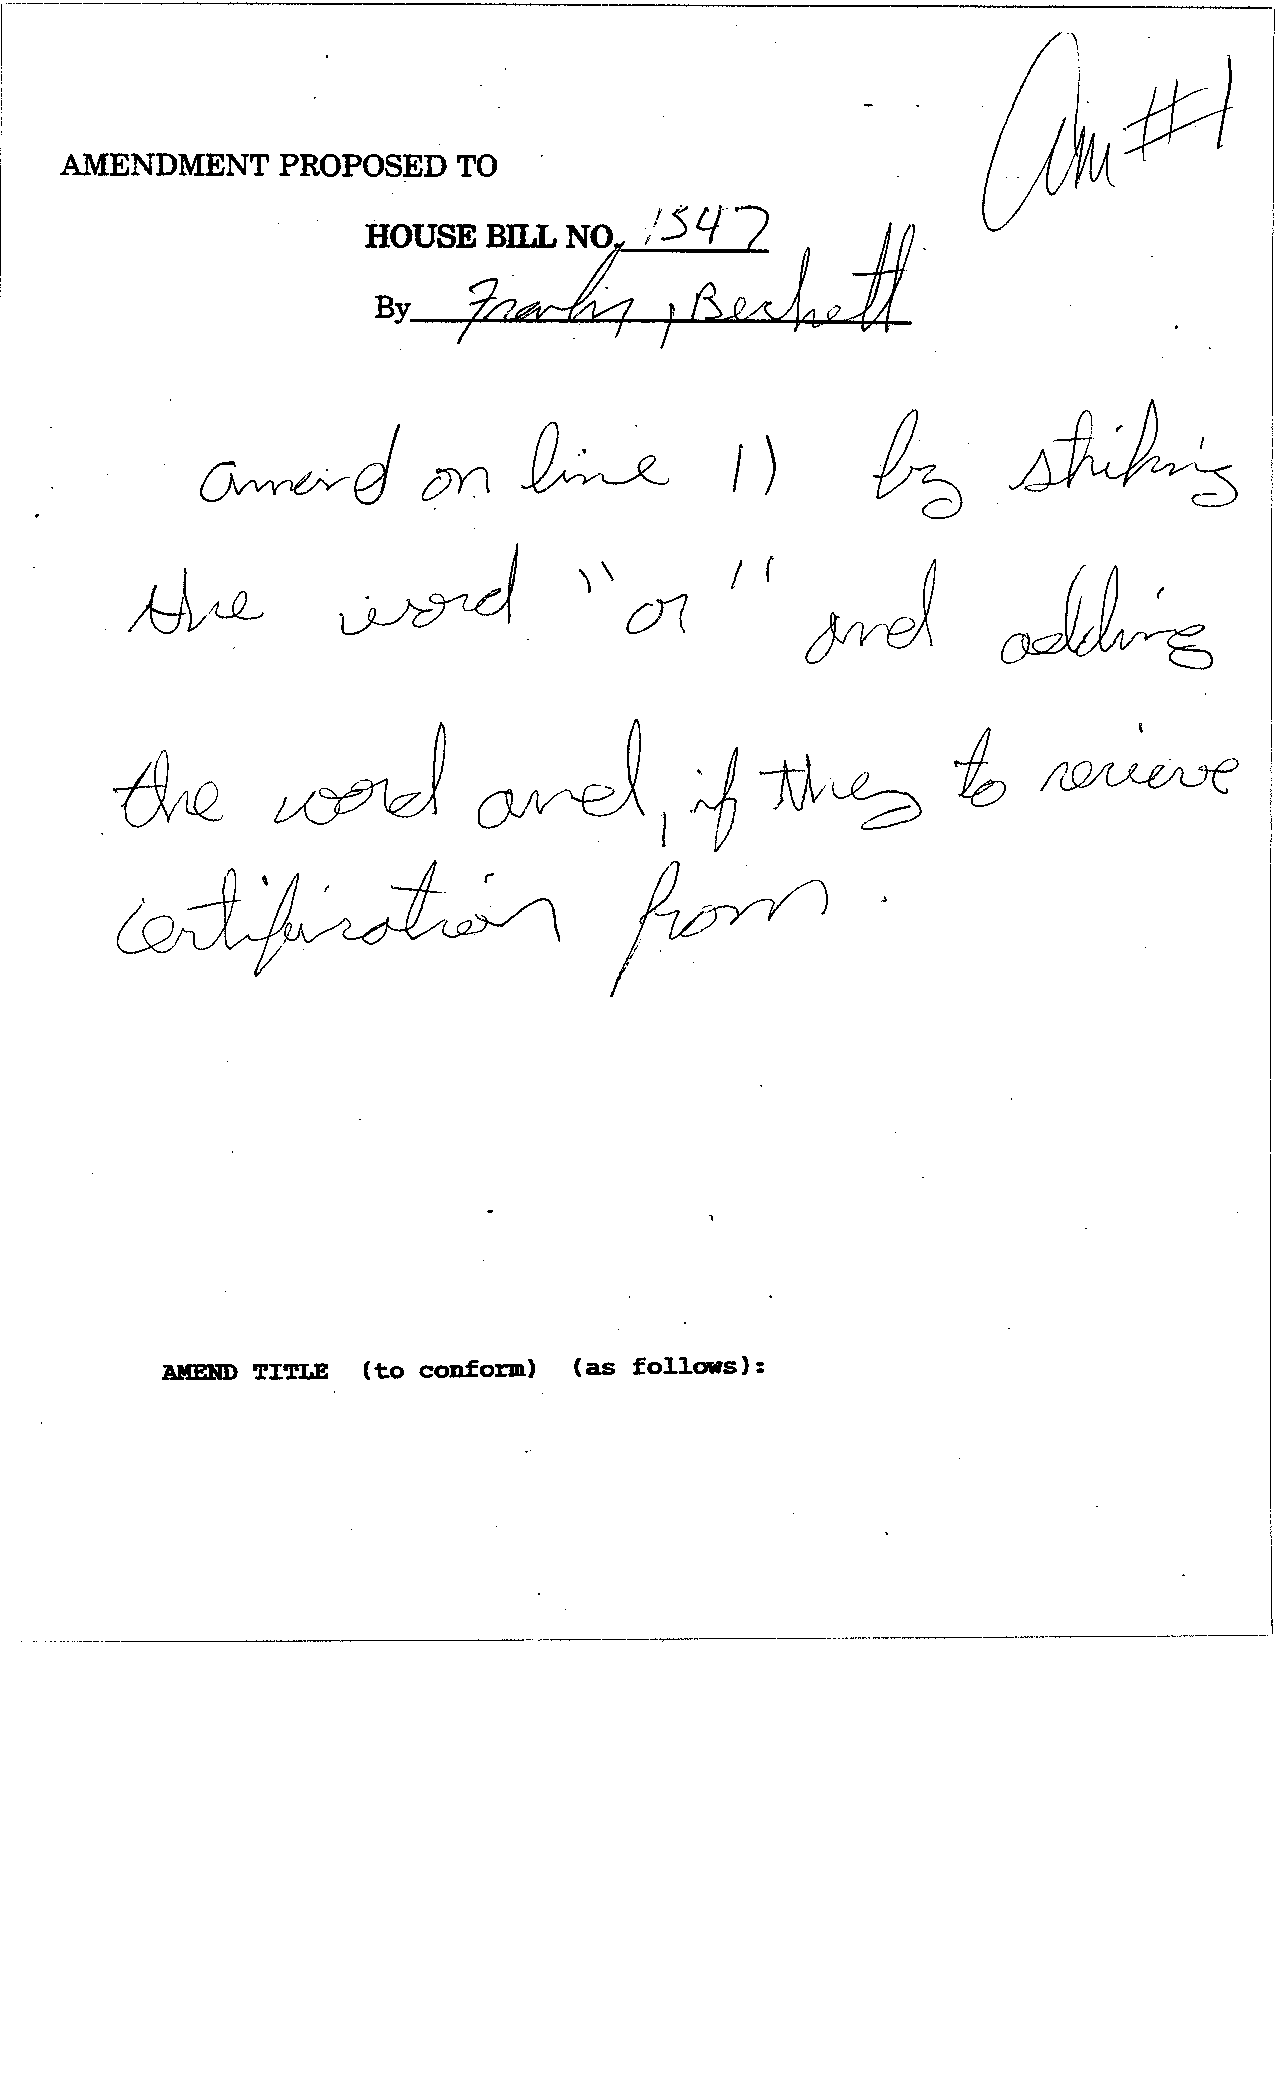 Am #1
AMENDMENT PROPOSED TO
HOUSE BILL NO. 1547
By Franks, Beckett
amend on line 11 by striking
the word "or" and adding
the word and, if they to recieve
certification from.
AMEND TITLE (to conform) (as follows):